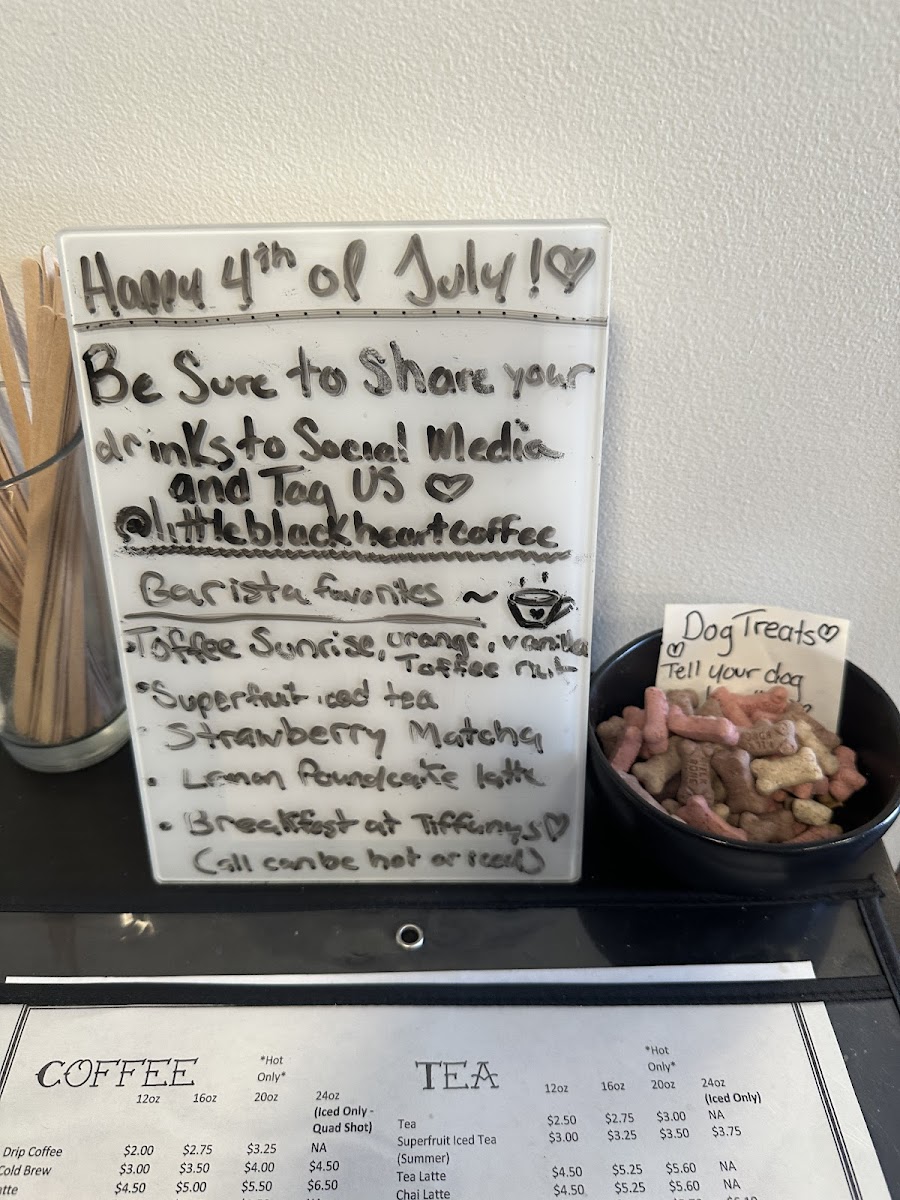 Happy 4th of July! ♡
Be Sure to Share your
drinks to Social Media
and Tag US ♡
@littleblackheartcoffee
Barista favorites ~
• Toffee Sunrise, orange, vanilla
Toffee nut
• Superfruit iced tea
• Strawberry Matcha
• Lemon Poundcake latte
• Breakfast at Tiffanys ♡
(all can be hot or iced)
Dog Treats ♡
♡
Tell your dog
COFFEE
*Hot
Only*
12oz 16oz 20oz 24oz
(Iced Only -
Quad Shot)
Drip Coffee $2.00 $2.75 $3.25 NA
Cold Brew $3.00 $3.50 $4.00 $4.50
$4.50 $5.00 $5.50 $6.50
TEA
*Hot
Only*
12oz 16oz 20oz 24oz
(Iced Only)
Tea $2.50 $2.75 $3.00 NA
Superfruit Iced Tea $3.00 $3.25 $3.50 $3.75
(Summer)
Tea Latte $4.50 $5.25 $5.60 NA
Chai Latte $4.50 $5.25 $5.60 NA